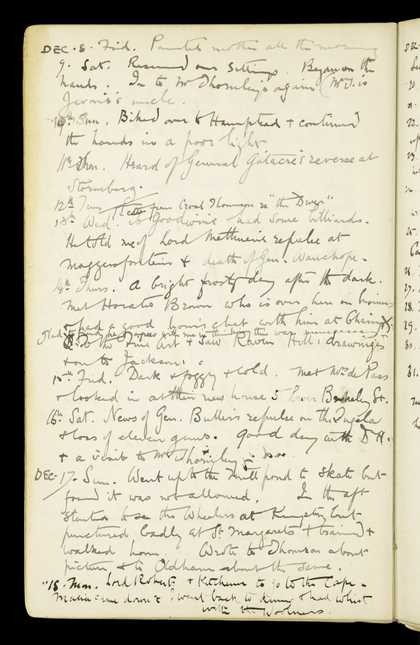 DEC. 8. Frid. Painted mother all the morning
9. Sat. Resumed our Sittings. Began on the
hands. In to Mr Thornley's again (Mr T. is
Jervis's uncle.
10th Sun. Biked over to Hampstead + continued
the hands in a poor light.
11th Mon. Heard of General Gatacre's reverse at
Stormberg.
12th Tues. Letter from Croal Thomson re "the Diver"
13th Wed. to Goodwins had some billiards.
He told me of Lord Methuen's repulse at
Maggersfontein & death of Gen. Wauchope.
14th Thurs. A bright frosty day after the dark.
Met Horatio Brown who is over here on business
+ had a good hour's chat with him at
To the Fine Art & saw Raven Hill's drawings
+ on to Jackson's.
15th Frid. Dark & foggy & cold. Met Mr de Pass
& looked in at their new house 5 Berkeley St.
16th Sat. News of Gen. Buller's repulse on the Tugela
& loss of eleven guns. Good day with D. H.
& a visit to Mr Thornley's
DEC 17. Sun. Went up to the Mill pond to skate but
found it was not allowed. In the aft
started to see the Wheelers at Kingston but
punctured badly at St Margarets & trained &
walked home. Wrote to Thomson about
picture & to Oldham about the same.
"18. Mon. Lord Roberts & Kitchener to go to the Cape.
came down & I went back to dinner & had whist
with the Woolners.